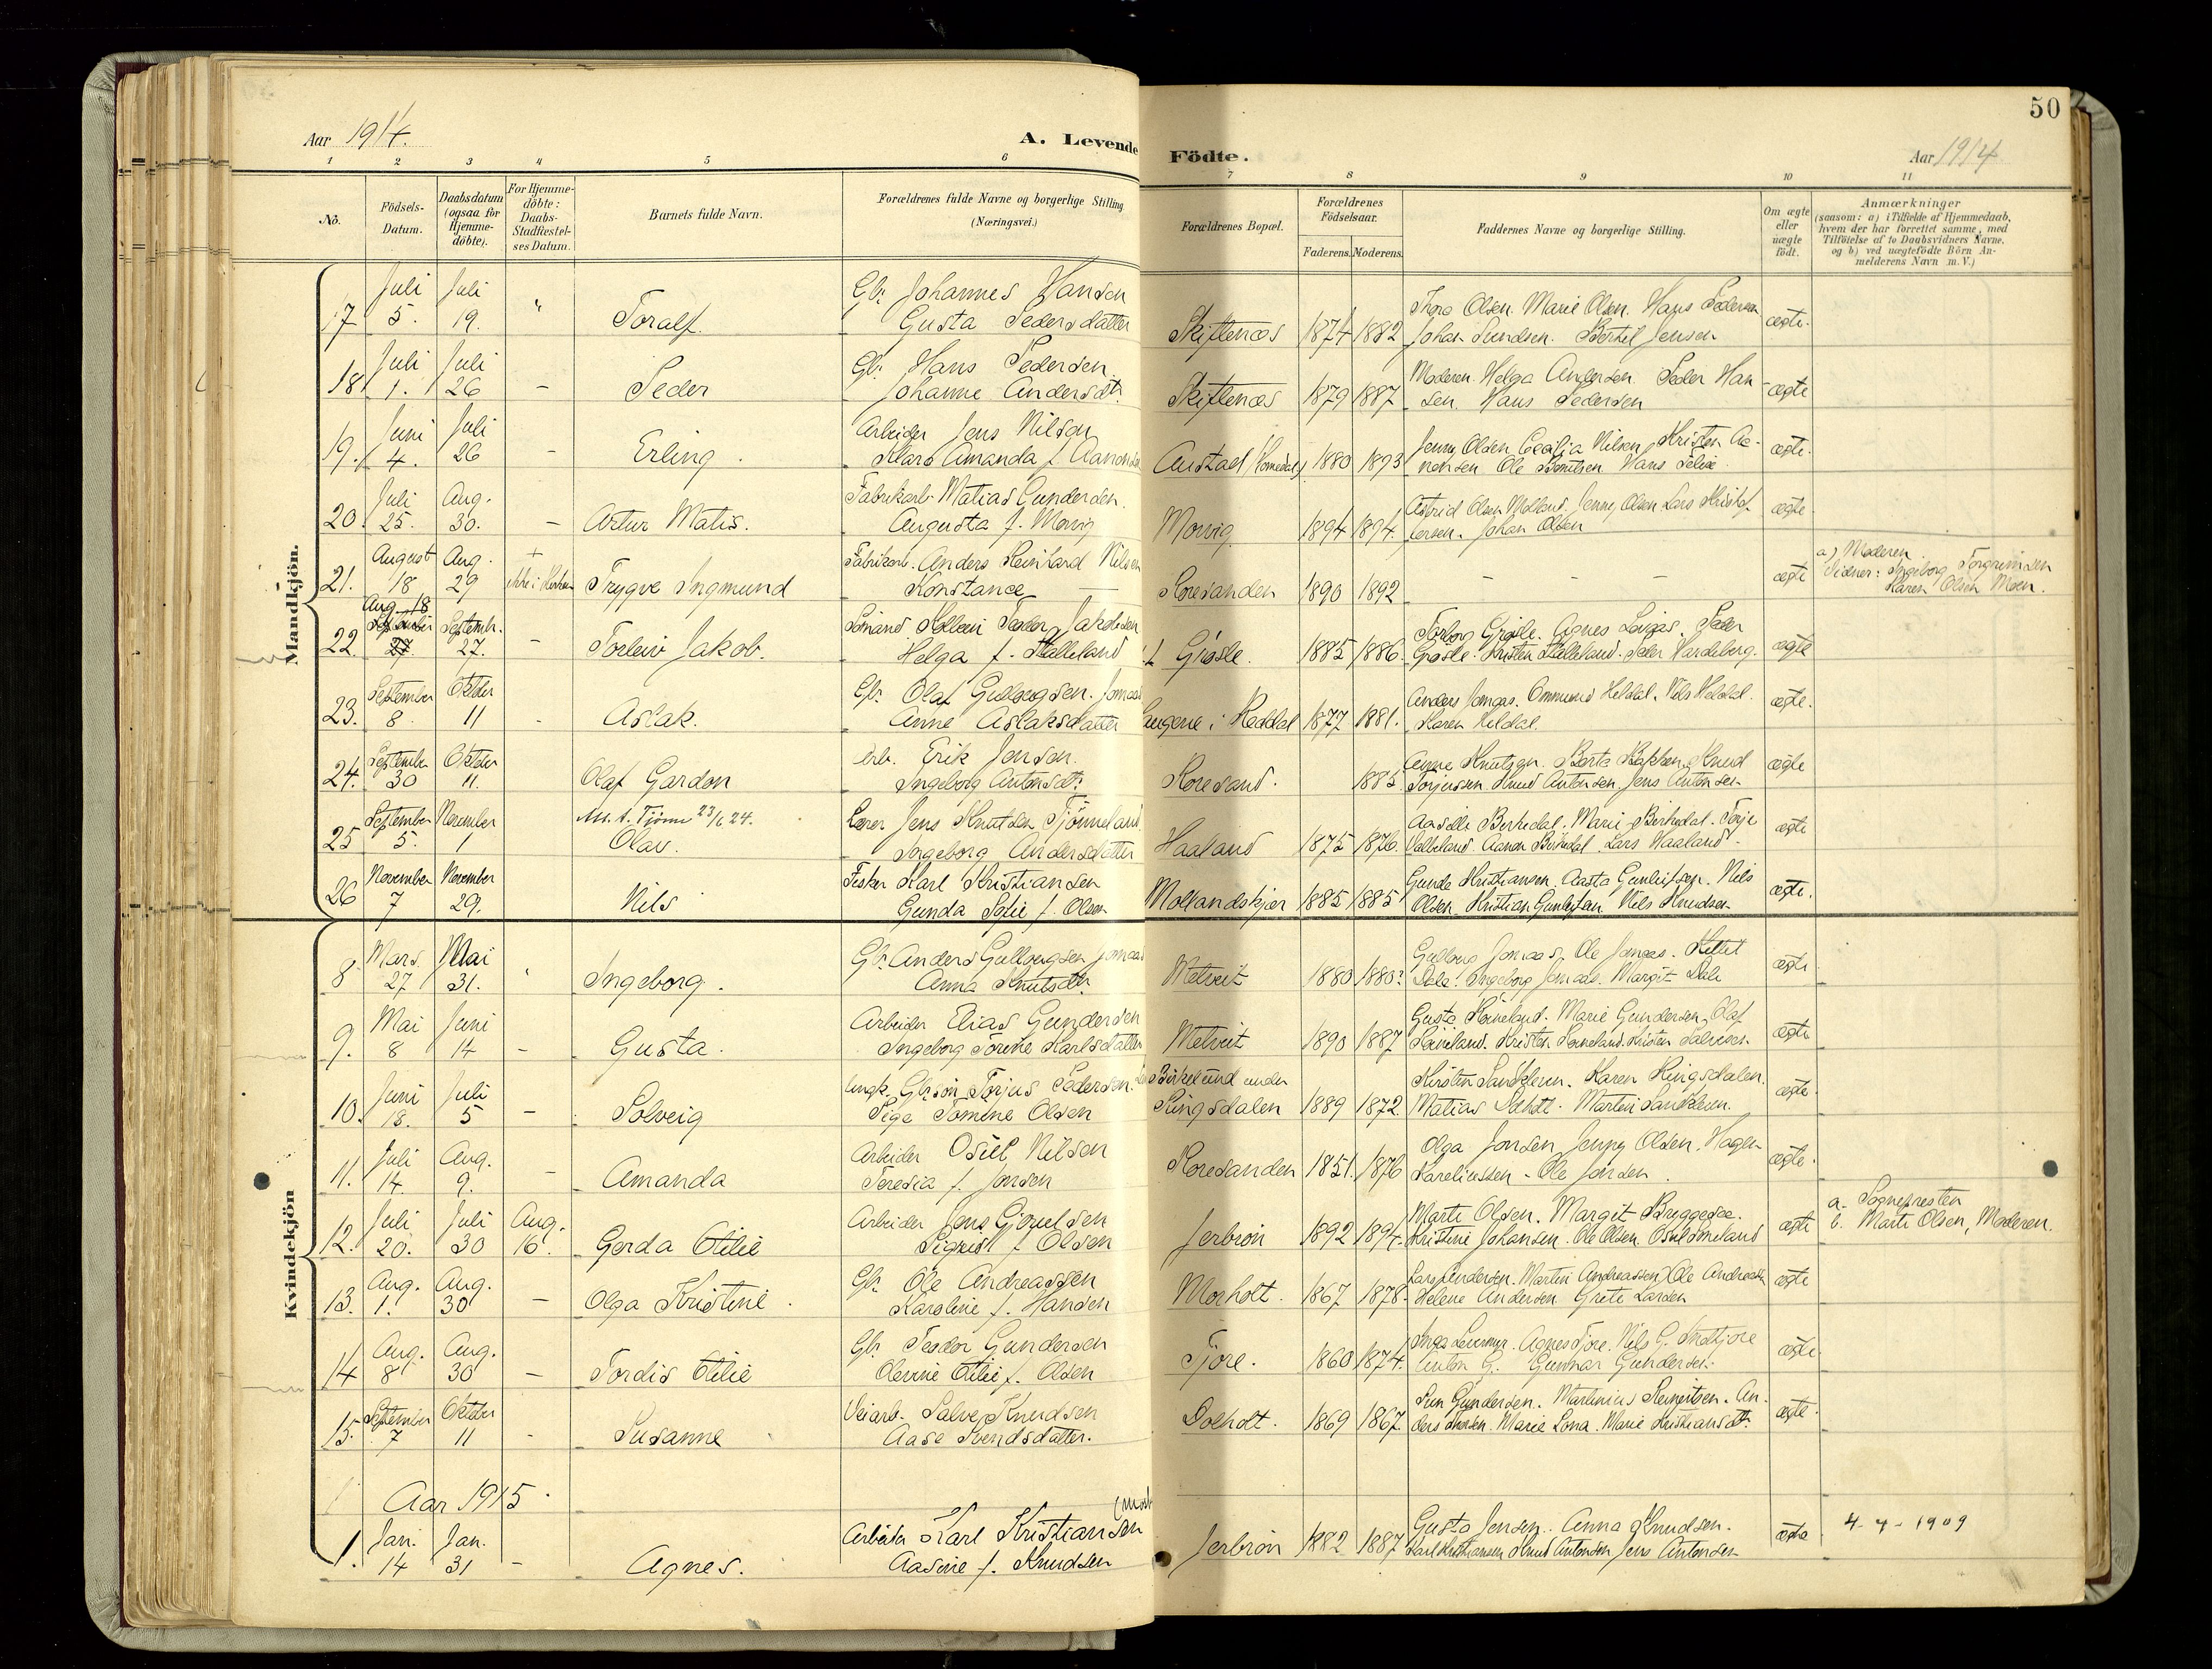 50
Aar 1914.
A. Levende Födte.
Aar 1914
1 2 3 4 5 6 7 8 9 10 11
Nö.
Födsels-Datum.
Daabsdatum (ogsaa for Hjemme-döbte).
For Hjemme-döbte: Daabs-Stadfæstel-ses Datum.
Barnets fulde Navn.
Forældrenes fulde Navne og borgerlige Stilling (Næringsvei.)
Forældrenes Bopæl.
Forældrenes Födselsaar.
Faderens. Moderens.
Faddernes Navne og borgerlige Stilling.
Om ægte eller uægte födt.
Anmærkninger
(saasom: a) i Tilfælde af Hjemmedaab, hvem der har forrettet samme, med Tilföielse af to Daabsvidners Navne, og b) ved uægtefödte Börn An-melderens Navn m. V.)
Mandkjön.
17 Juli 5. Juli 19. " Toralf. Gbr. Johannes Hansen
Gusta Pedersdatter Skiftenæs 1874 1882 Thora Olsen. Marie Olsen. Hans Pedersen
Johan Bertil Jensen ægte.
18 Juli 1. Juli 26 – Peder Gbr. Hans Pedersen.
Johanne Andersdt. Skiftenæs 1879 1887 Moderen. Helga Andersen. Peder Han-
sen. Hans Pedersen ægte
19. Juni 4. Juli 26 – Erling. Arbeider Jens Nilsen
Klara Amanda f. Aanonsen Austad (Homedal) 1880 1893 Jenny Olsen. Cecilia Nilsen, Kristen Aa-
nonsen. Ole Hans ægte.
20. Juli 25. Aug. 30. – Artur Matis. Fabrikarb. Matias Gundersen.
Augusta f. Morvig Morvig 1894 1894. Astrid Olsen Jenny Olsen Lars Kristof-
fersen. Johan Olsen ægte
21. August 18 Aug. 29 + ikke i Kirken Trygve Ingmund Fabrikarb. Anders Reinhard Nilsen
Konstance Roresanden 1890 1892 – – – ægte a) Moderen.
Vidner: Ingeborg Torgrimsen
Karen Olsen Moen.
22. Aug. 18 Septembr. 27. – Torleiv Jakob. Peder Jakobsen
Helga f. Stalleland Grøsle. 1885 1886. Torborg Grøsle. Agnes Peder
Grøsle. Kristen Stalleland. Peder Hardeberg. ægte
23. September 8. Oktober 11 - Aslak. Gbr. Olaf Gulbrandsen. Jomaas
Anne Aslaksdatter i Reddal 1877 1881. Anders Jomaas. Ommund Heldal. Nils Heldal.
Karen Heldal. ægte.
24. September 30 Oktober 11. Olaf Gardon Arb. Erik Jensen.
Ingeborg Antonsdt. Roresand. 1885. Anne Knutsen. Berta Bakken. Knud
Torjussen. Knud Antonsen. Jens Antonsen ægte
25 September 5. November 1 Att. t. Tjömö 23/6 24.
Olav. Lærer Jens Knutsen Tjönneland
Ingeborg Andersdatter Haaland 1875 1876. Birkedal. Marie Birkedal. Torje
Aanon Birkedal. Lars Haaland. ægte
26 November 7 November 29. Nils Fisker Karl Kristiansen
Gunda Sofie f. Olsen Mollandskjær 1885 1885 Gunde Kristiansen. Aasta Gunleifsen. Nils
Olsen. Kristian Gunleifsen Nils Knudsen ægte.
Kvindekjön
8 Mars. 27 Mai 31. " Ingeborg. Gbr. Anders Jomaas
Anna Knutsdtr. Metveit 1880 1880? Gulborg Jomaas. Ole Jomaas. Kittel
Dale. Ingeborg Jomaas. Margit Dale ægte
9. Mai 8 Juni 14 – Gusta. Arbeider Elias Gundersen
Ingeborg Torine Karlsdatter Metveit 1890 1887 Gusta Marie Gundersen. Olaf
Kristen ægte
10. Juni 18. Juli 5 – Solveig Ungk. Gbrsön Torjus Pedersen.
Pige Tomine Olsen Birkelund under
Ringsdalen 1889 1872. Kirsten Karen Ringsdalen.
Matias Martin ægte
11. Juli 14. Aug. 9. – Amanda Arbeider Osuld Nilsen
Teresia f. Jonsen Roresanden 1851. 1876 Olga Jonsen Jenny Olsen. Hagen
Kareliussen – Ole Jonsen. ægte.
12. Juli 20. Juli 30 Aug. 16. Gerda Otilie Arbeider Jens
Sigrid f. Olsen Jerbron 1892 1894. Marte Olsen. Margit Bryggesaa.
Kristine Johansen. Ole Olsen. ægte a. Sognepresten
b. Marte Olsen, Moderen.
13. Aug. 1. Aug. 30 – Olga Kristine. Gbr. Ole Andreassen
Karoline f. Hansen Morholt. 1867 1878. Lars Andersen. Martin Andreassen, Ole Andreassen
Helene Andersen. Grete Larsen ægte
14 Aug. 8 Aug. 30 – Tordis Otilie Gbr. Teodor Gundersen
Olevine Otilie f. Olsen Tjore. 1860 1874. Agnes Tjore. Nils G.
Anton G. Gunnar Gundersen. ægte
15. September 7 Oktober 11 - Susanne Veiarb. Salve Knudsen
Aase Svendsdatter. Dolholt. 1869 1867. Gundersen. Martinius An-
ders Marie Lona. Marie Kristiansdt. ægte.
Aar 1915.
1. Jan. 14 Jan. 31 – Agnes. Arbeider Karl Kristiansen
Aasine f. Knudsen Jerbron 1882 1887 Gusta Jensen. Anna Knudsen.
Karl Kristiansen Knud Antonsen Jens Antonsen ægte 4-4-1909